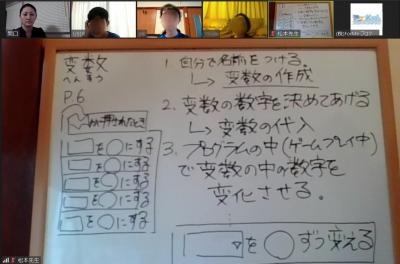 関口
松本先生
変数
へんすう
P.6
が押されたとき
を○にする
を○にする
を○にする
を○にする
を○にする
1. 自分で名前をつける。
↳ 変数の作成
2. 変数の数字を決めてあげる
↳ 変数の代入
3. プログラムの中(ゲームプレイ中)
で変数の中の数字を
変化させる。
を○ずつ変える
松本先生